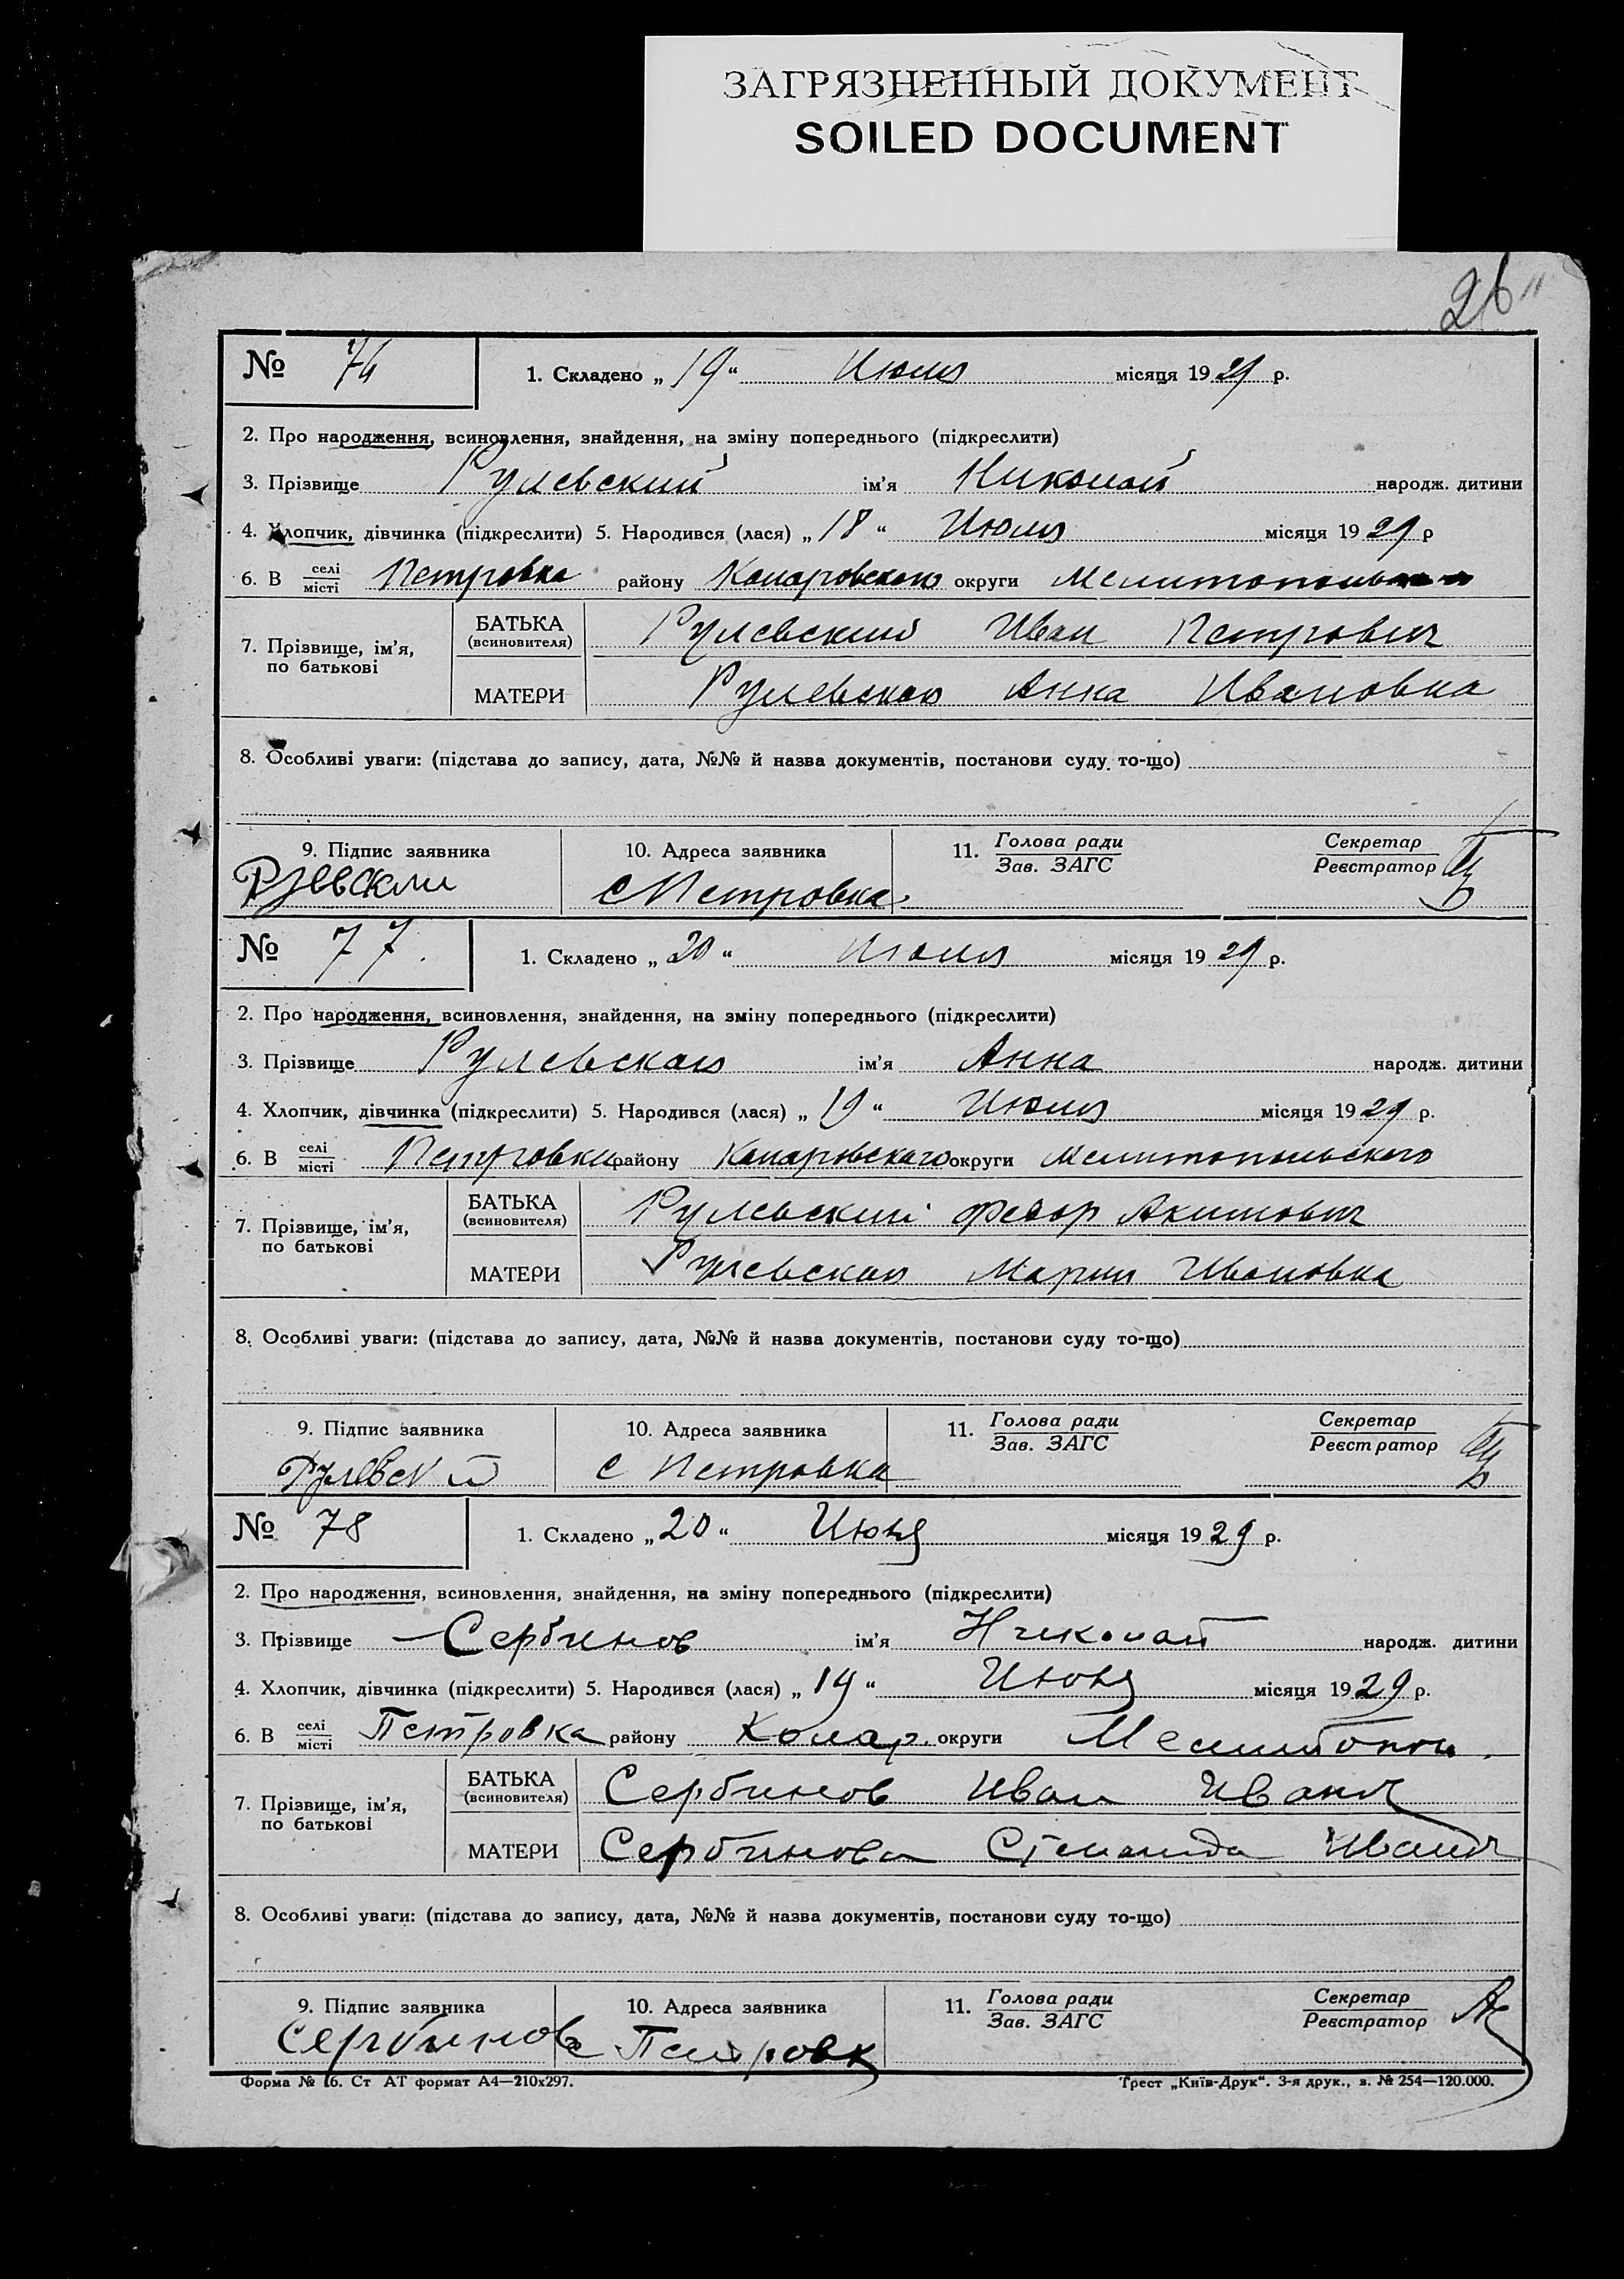 ЗАГРЯЗНЕННЫЙ ДОКУМЕНТ
SOILED DOCUMENT
26
№ 76
1. Складено „19“ Июля місяця 1929 р.
2. Про народження, всиновлення, знайдення, на зміну попереднього (підкреслити)
3. Прізвище Рулевский ім'я Николай народж. дитини
4. Хлопчик, дівчинка (підкреслити) 5. Народився (лася) „18“ Июля місяця 1929 р
6. В селі/місті Петровка району Коларовского округи
7. Прізвище, ім'я, по батькові
БАТЬКА (всиновителя) Рулевский Иван Петрович
МАТЕРИ Рулевская Анна Ивановка
8. Особливі уваги: (підстава до запису, дата, №№ й назва документів, постанови суду то-що)
9. Підпис заявника 10. Адреса заявника 11. Голова ради/Зав. ЗАГС Секретар/Реєстратор
с Петровка
№ 77.
1. Складено „20“ Июля місяця 1929 р.
2. Про народження, всиновлення, знайдення, на зміну попереднього (підкреслити)
3. Прізвище Рулевская ім'я Анна народж. дитини
4. Хлопчик, дівчинка (підкреслити) 5. Народився (лася) „19“ Июля місяця 1929 р.
6. В селі/місті Петровки району Коларовского округи Мелитопольского
7. Прізвище, ім'я, по батькові
БАТЬКА (всиновителя) Рулевский Федор Акимович
МАТЕРИ Рулевская Мария Ивановка
8. Особливі уваги: (підстава до запису, дата, №№ й назва документів, постанови суду то-що)
9. Підпис заявника 10. Адреса заявника 11. Голова ради/Зав. ЗАГС Секретар/Реєстратор
Рулевский с Петровка
№ 78
1. Складено „20“ Июля місяця 1929 р.
2. Про народження, всиновлення, знайдення, на зміну попереднього (підкреслити)
3. Прізвище Сербинов ім'я Николай народж. дитини
4. Хлопчик, дівчинка (підкреслити) 5. Народився (лася) „19“ Июля місяця 1929 р.
6. В селі/місті Петровка району Колар. округи Мелитопол.
7. Прізвище, ім'я, по батькові
БАТЬКА (всиновителя) Сербинов Иван Иванч
МАТЕРИ Сербинова Степанида
8. Особливі уваги: (підстава до запису, дата, №№ й назва документів, постанови суду то-що)
9. Підпис заявника 10. Адреса заявника 11. Голова ради/Зав. ЗАГС Секретар/Реєстратор
Сербинов с Петровк
Форма № 16. Ст АТ формат А4—210х297. Трест „Київ-Друк“. 3-я друк., з. № 254—120.000.